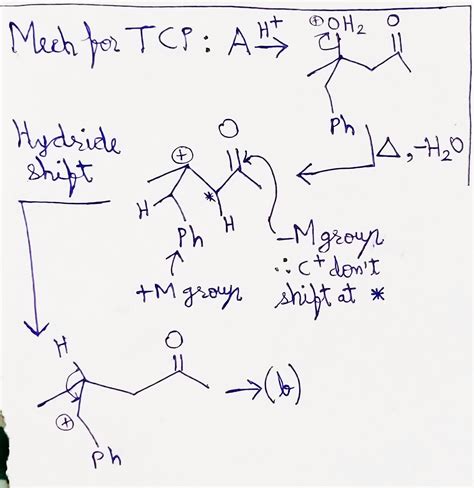 Mech for TCP : A H+ → ⊕OH2 O
Ph
Δ, -H2O
Hydride
shift
⊕ O
H * H
Ph
+M group
-M group
∴ C+ don't
shift at *
H O
⊕
Ph
→ (b)